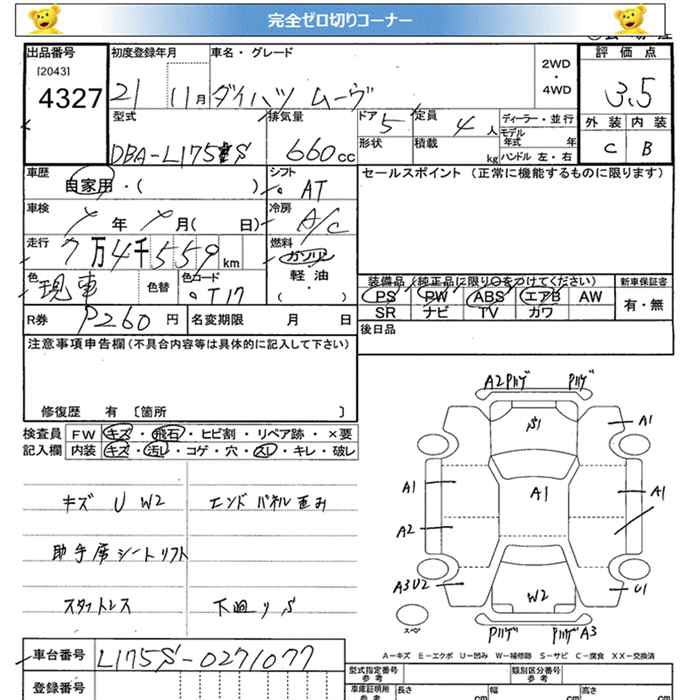 完全ゼロ切りコーナー
出品番号
[2043]
4327
初度登録年月
21 11月
車名・グレード
ダイハツ ムーヴ
2WD
・
4WD
評価点
3.5
外装 内装
C B
型式
DBA-L175S
排気量
660cc
ドア 5
形状
定員 4人
積載 kg
ディーラー・並行
モデル年式 年
ハンドル 左・右
車歴
自家用・( )
シフト
AT
セールスポイント(正常に機能するものに限ります)
車検
年 月( 日)
冷房
A/C
走行
7万4千559km
燃料
ガソリン
軽・油
( ・ )
色
現車
色替
色コード
T17
装備品(純正品に限り○をつけてください)
PS PW ABS エアB AW
SR ナビ TV カワ
新車保証書
有・無
R券 P260円
名変期限 月 日
後日品
注意事項申告欄(不具合内容等は具体的に記入して下さい)
修復歴 有 [箇所 ]
検査員記入欄
FW キズ・飛石・ヒビ割・リペア跡・×要
内装 キズ・汚レ・コゲ・穴・スレ・キレ・破レ
キズ U W2
エンドパネル歪み
助手席シートリフト
スタットレス
下廻りS
A2 Pハゲ Pハゲ
S1 A1
A1 A1 A1
A2
A3U2 U1
W2
スペア
Pハゲ Pハゲ A3
A-キズ E-エクボ U-凹み W-補修跡 S-サビ C-腐食 XX-交換済
車台番号 L175S-0271077
登録番号
型式指定番号
参考
類別区分番号
参考
車庫証明用
参考
長さ cm
幅 cm
高さ cm